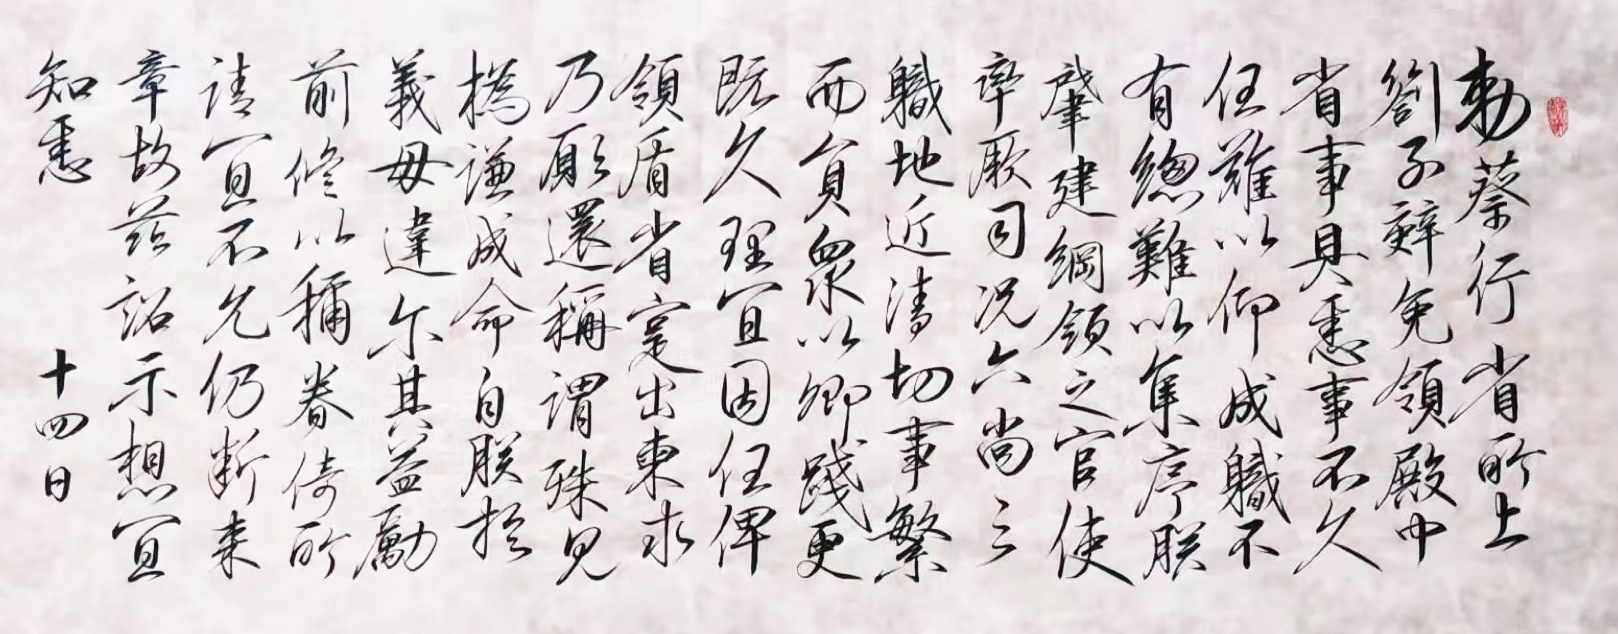 勅蔡行省所上
劄子辭免領殿中
省事具悉事不久
任難以仰成職不
有總難以集序朕
肇建綱領之官使
率厥司况六尚之
職地近清切事繁
而員眾以卿踐更
既久理宜因任俾
領盾省寔出柬求
乃願還稱謂殊見
撝謙成命自朕於
義毋違尔其益勵
前修以稱眷倚所
請宜不允仍断来
章故茲詔示想宜
知悉
十四日